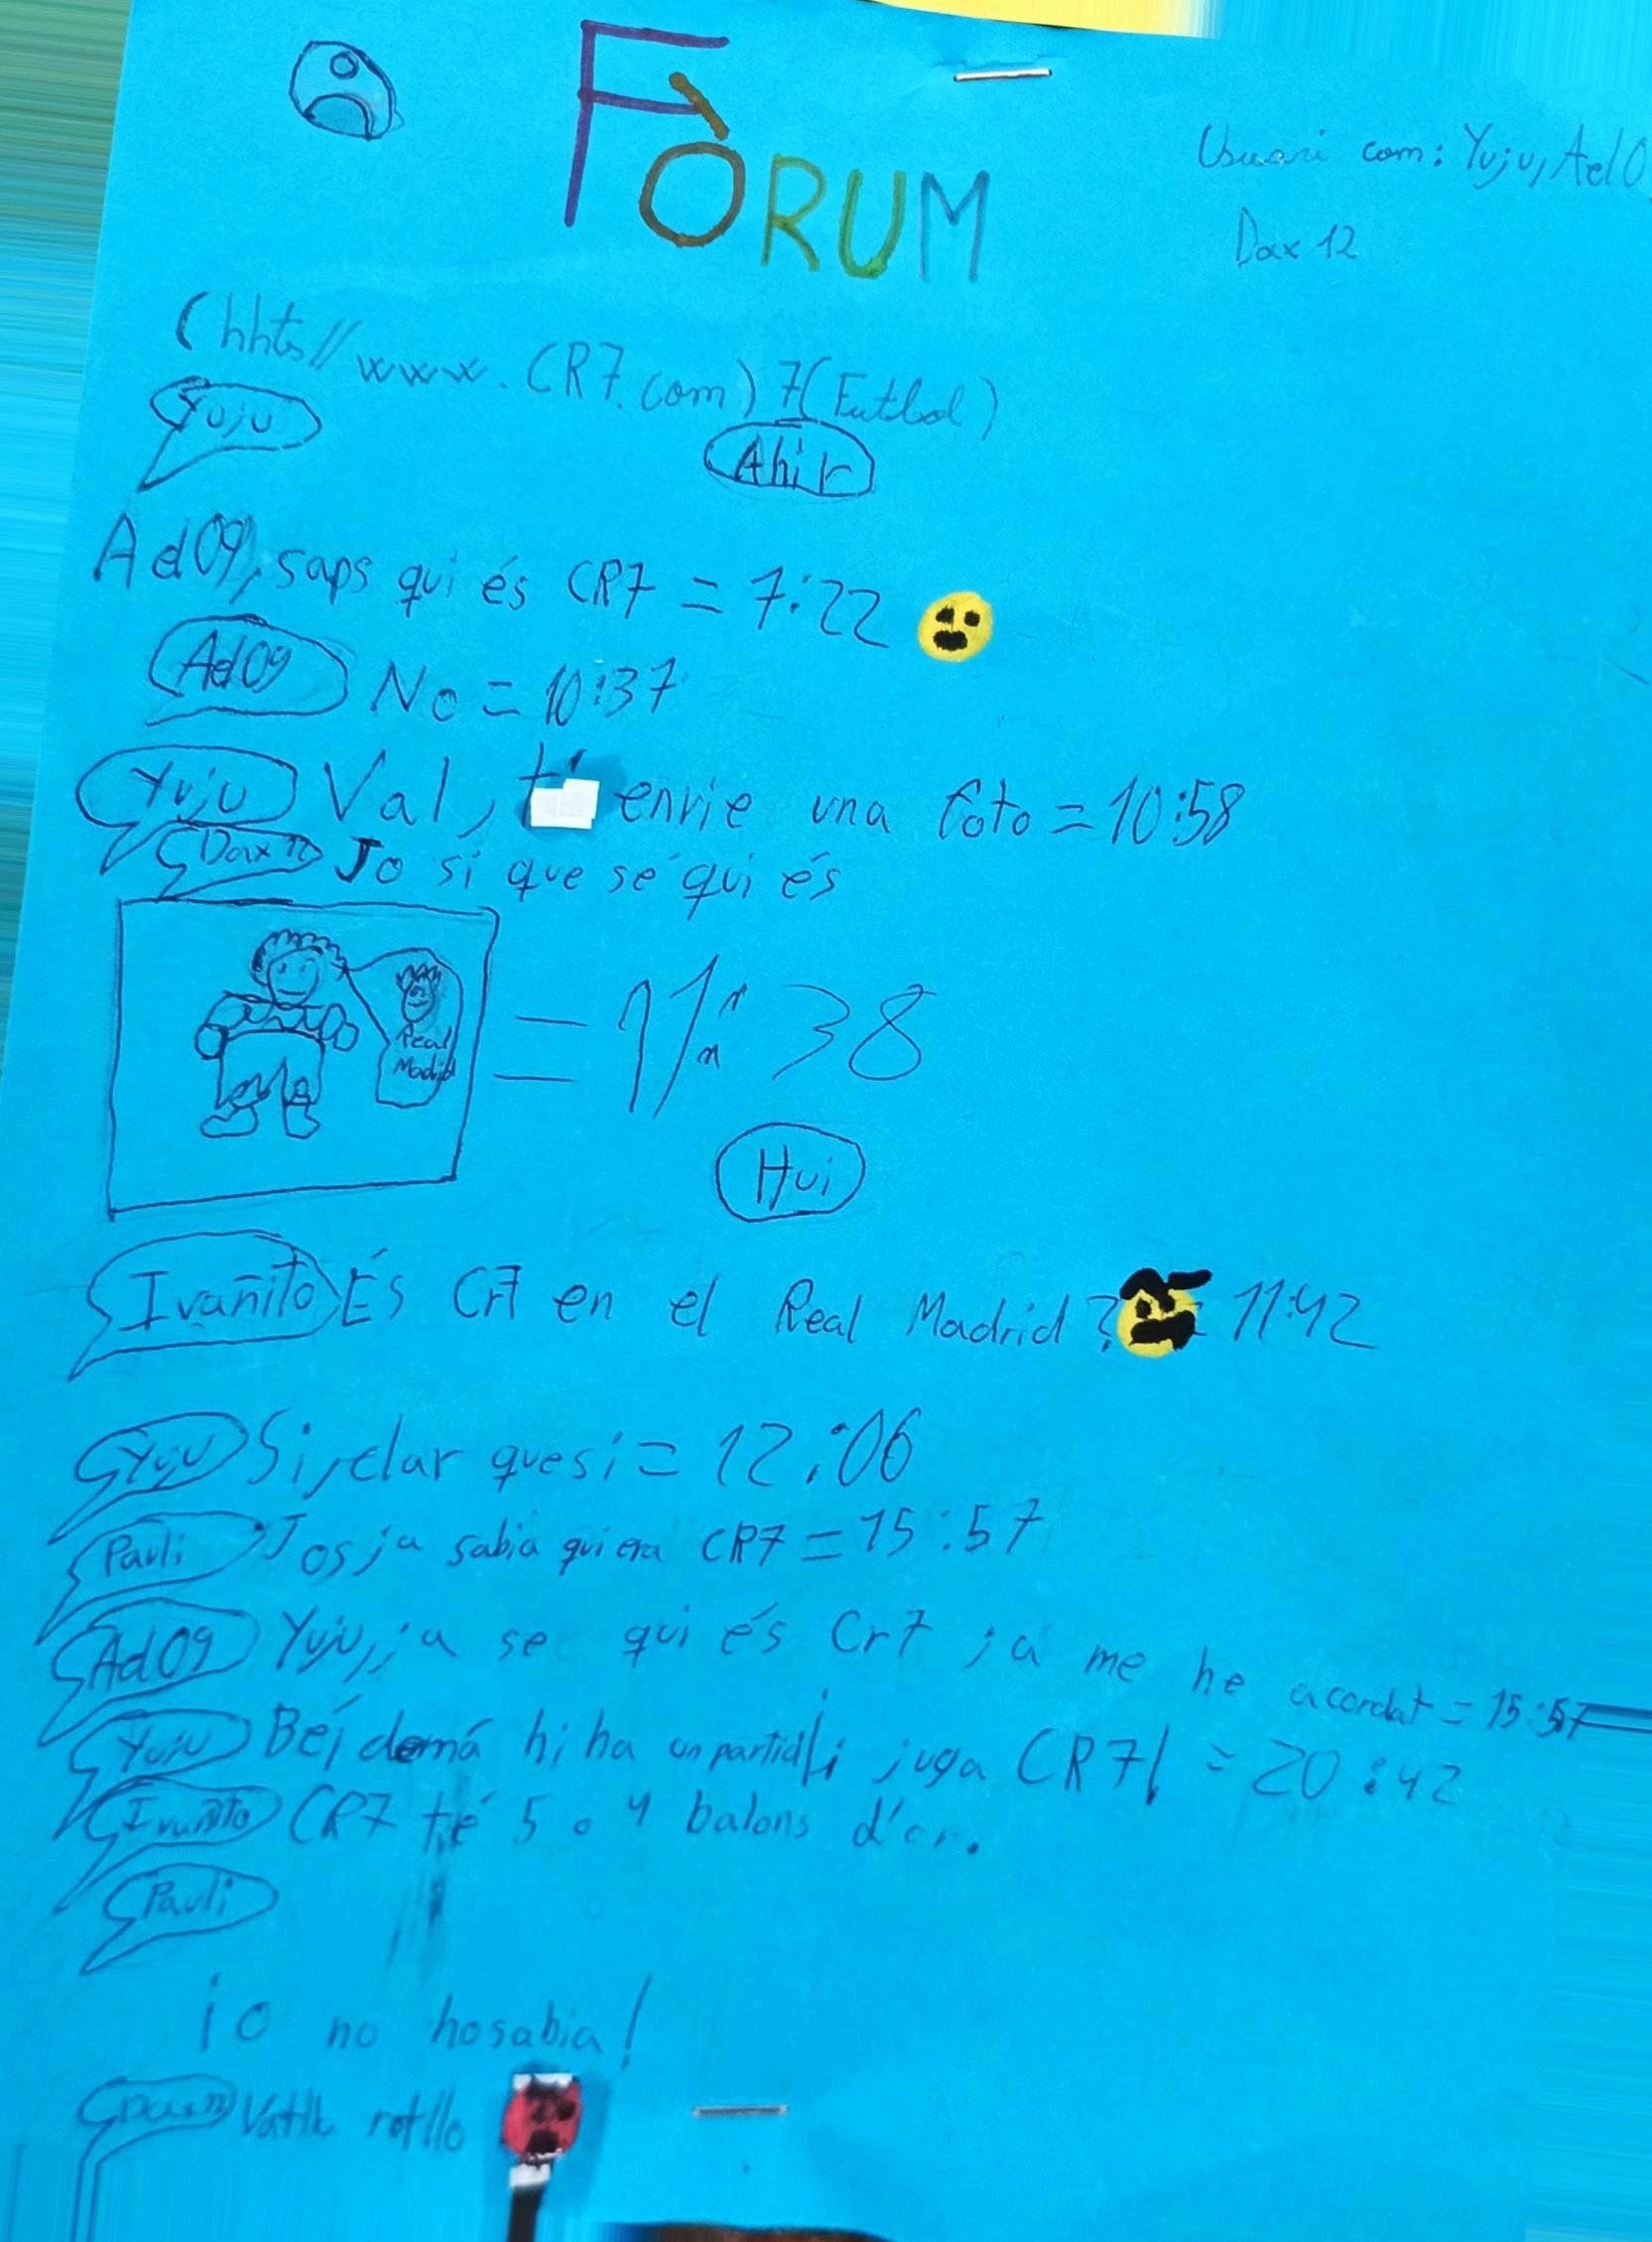 FÒRUM
Usuari com: Yuju, Ad0
Dax 12
(hhts//www.CR7.com) 7(Futbol)
Yuju
Ahir
Ad09, saps qui és CR7 = 7:22
Ad09 No = 10:37
Yuju Val, t' envie una foto = 10:58
Dax12 Jo si que sé qui és
Real
Madrid
= 11:38
Hui
Ivañito És Cr7 en el Real Madrid? = 11:42
Yuju Si, clar quesi = 12:06
Pauli Jos ja sabia qui era CR7 = 15:57
Ad09 Yuju, ja se qui és Cr7 ja me he acordat = 15:57
Yuju Bé, demá hi ha un partid i juga CR7! = 20:42
Ivañito CR7 té 5 o 4 balons d'or.
Pauli
io no hosabia!
rotllo